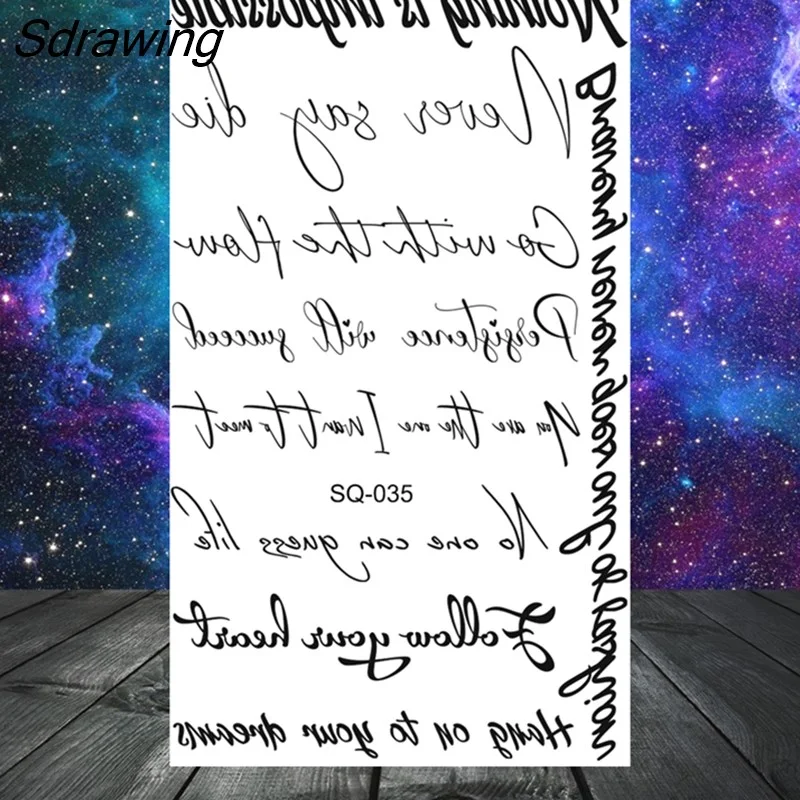 Nothing is impossible
Sdrawing
Never say die
Go with the flow
Persistence will succeed
You are the one I want to meet
SQ-035
No one can guess life
Follow your heart
Hang on to your dreams
Bravery never goes out of fashion